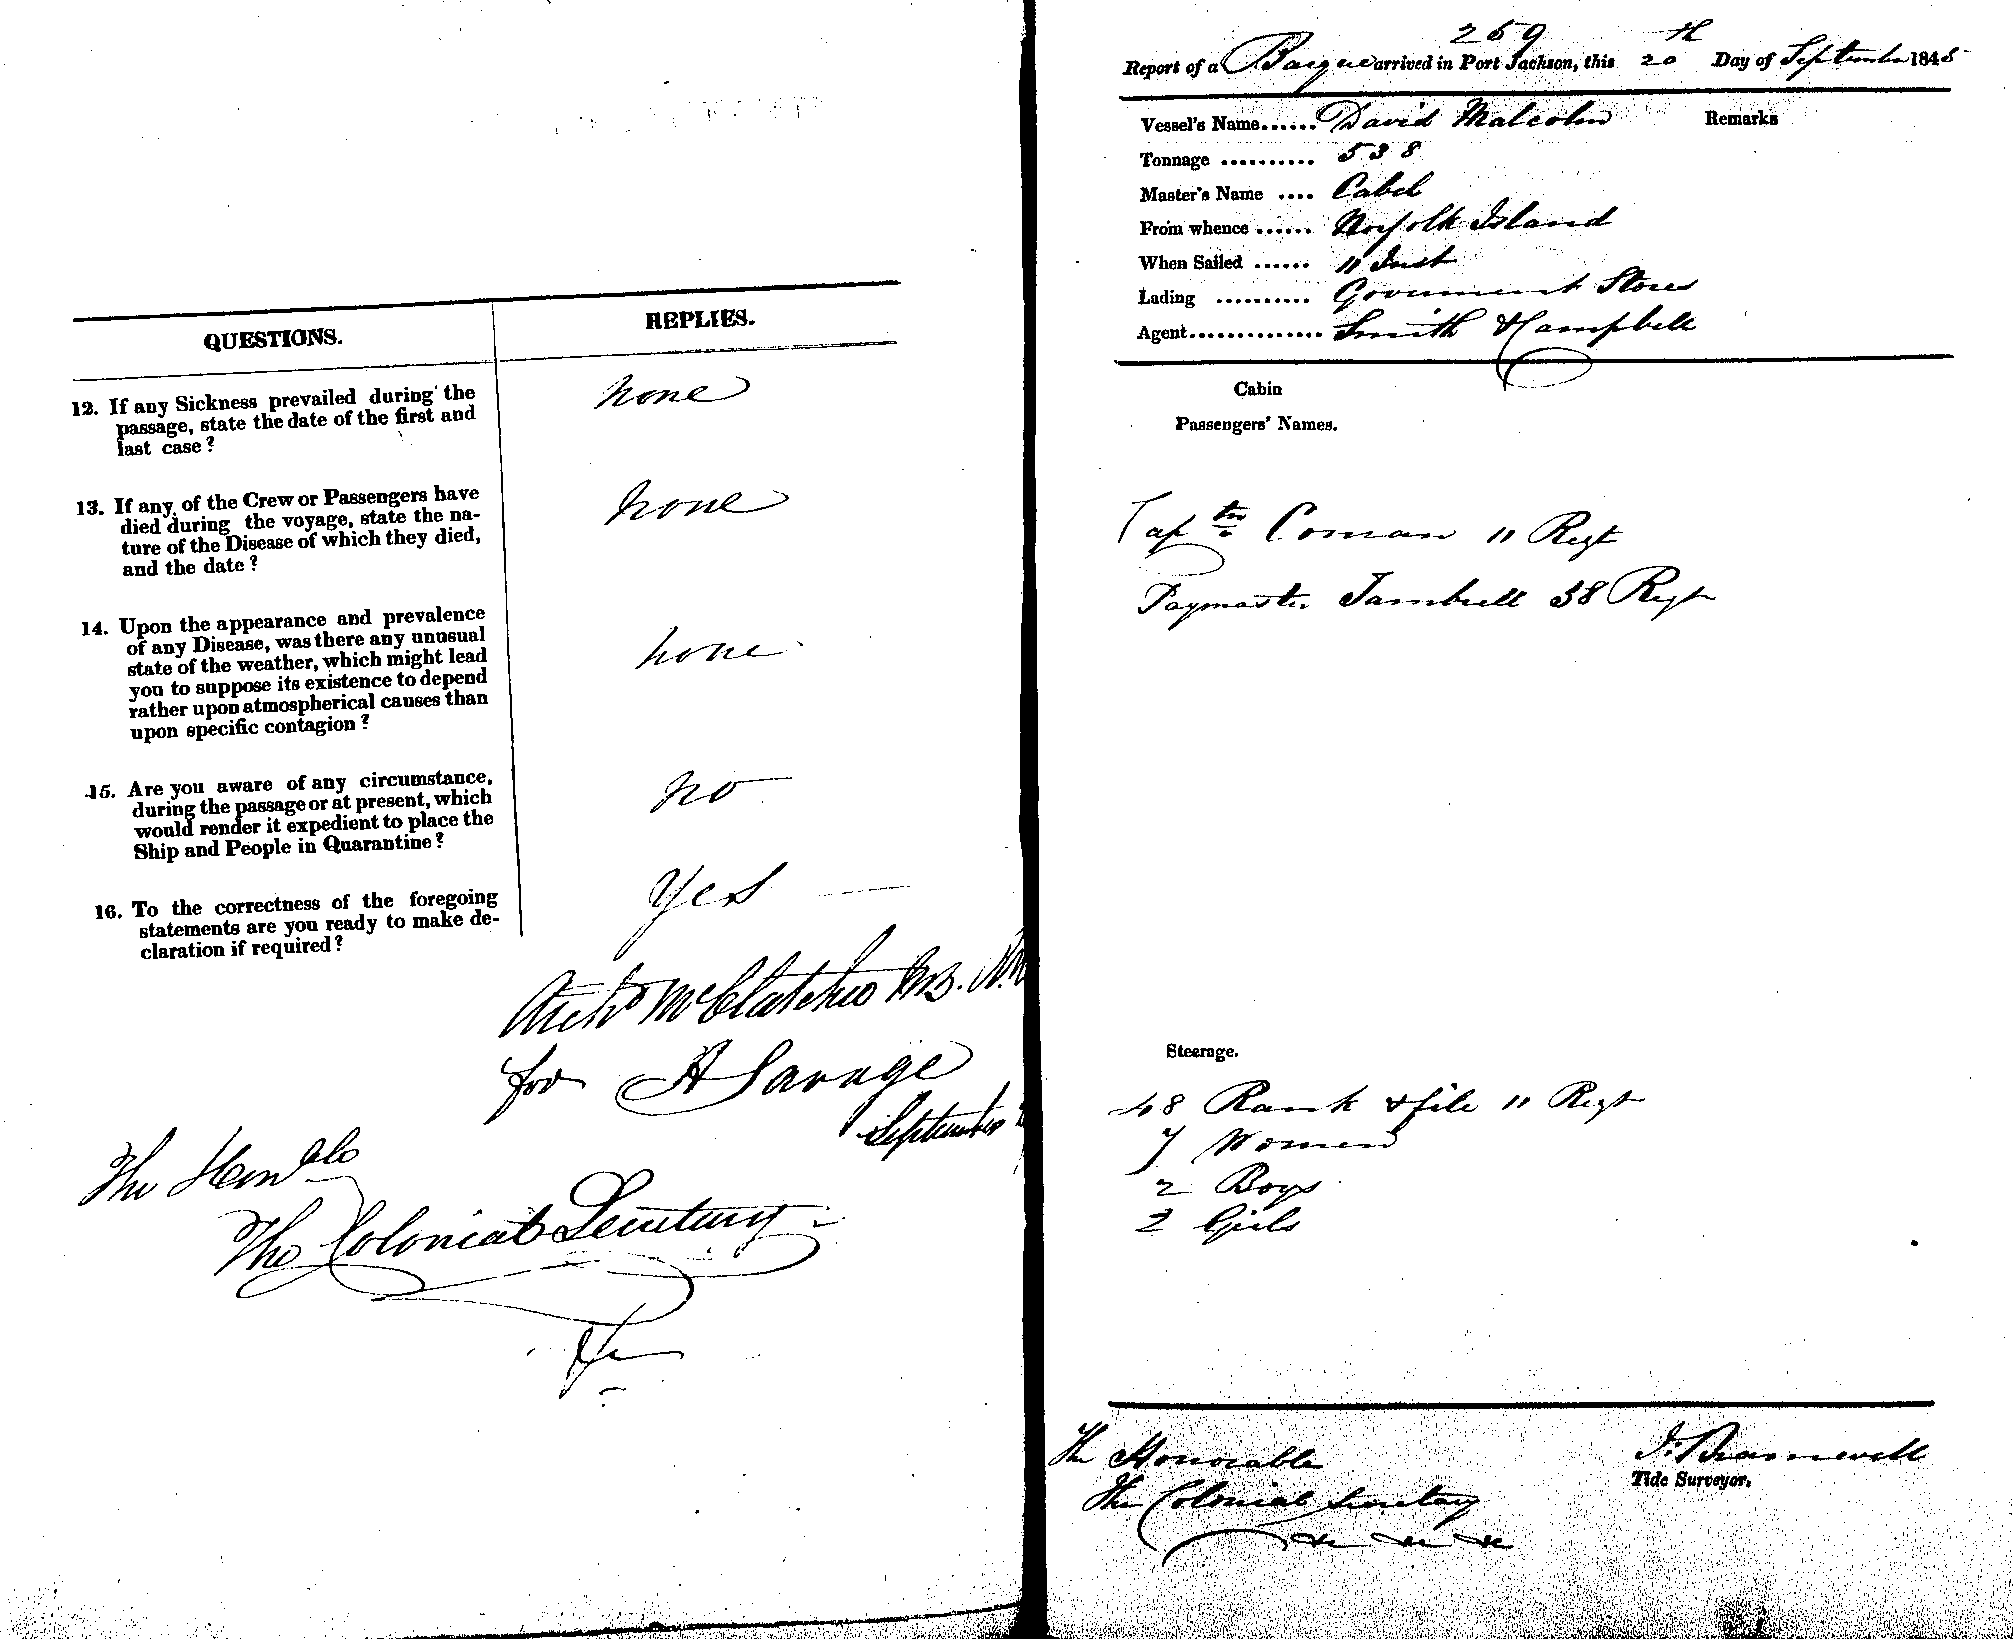 QUESTIONS.
REPLIES.
12. If any Sickness prevailed during the
passage, state the date of the first and
last case?
none
13. If any of the Crew or Passengers have
died during the voyage, state the na-
ture of the Disease of which they died,
and the date?
none
14. Upon the appearance and prevalence
of any Disease, was there any unusual
state of the weather, which might lead
you to suppose its existence to depend
rather upon atmospherical causes than
upon specific contagion?
none
15. Are you aware of any circumstance,
during the passage or at present, which
would render it expedient to place the
Ship and People in Quarantine?
no
16. To the correctness of the foregoing
statements are you ready to make de-
claration if required?
Yes
Archd McClatchie
for A Savage
September
The Honble
The Colonial Secretary
269
Report of a Barque arrived in Port Jackson, this 20th Day of September 1845
Vessel's Name...... David Malcolm
Remarks
Tonnage .......... 538
Master's Name .... Cabel
From whence ...... Norfolk Island
When Sailed ...... 11 Inst
Lading .......... Government Stores
Agent.............. Smith & Campbell
Cabin
Passengers' Names.
Captn Coman 11 Regt
Paymaster 58 Regt
Steerage.
48 Rank & file 11 Regt
7 Women
2 Boys
2 Girls
The Honorable
The Colonial Secretary
&c &c &c
J. Bramwell
Tide Surveyor.